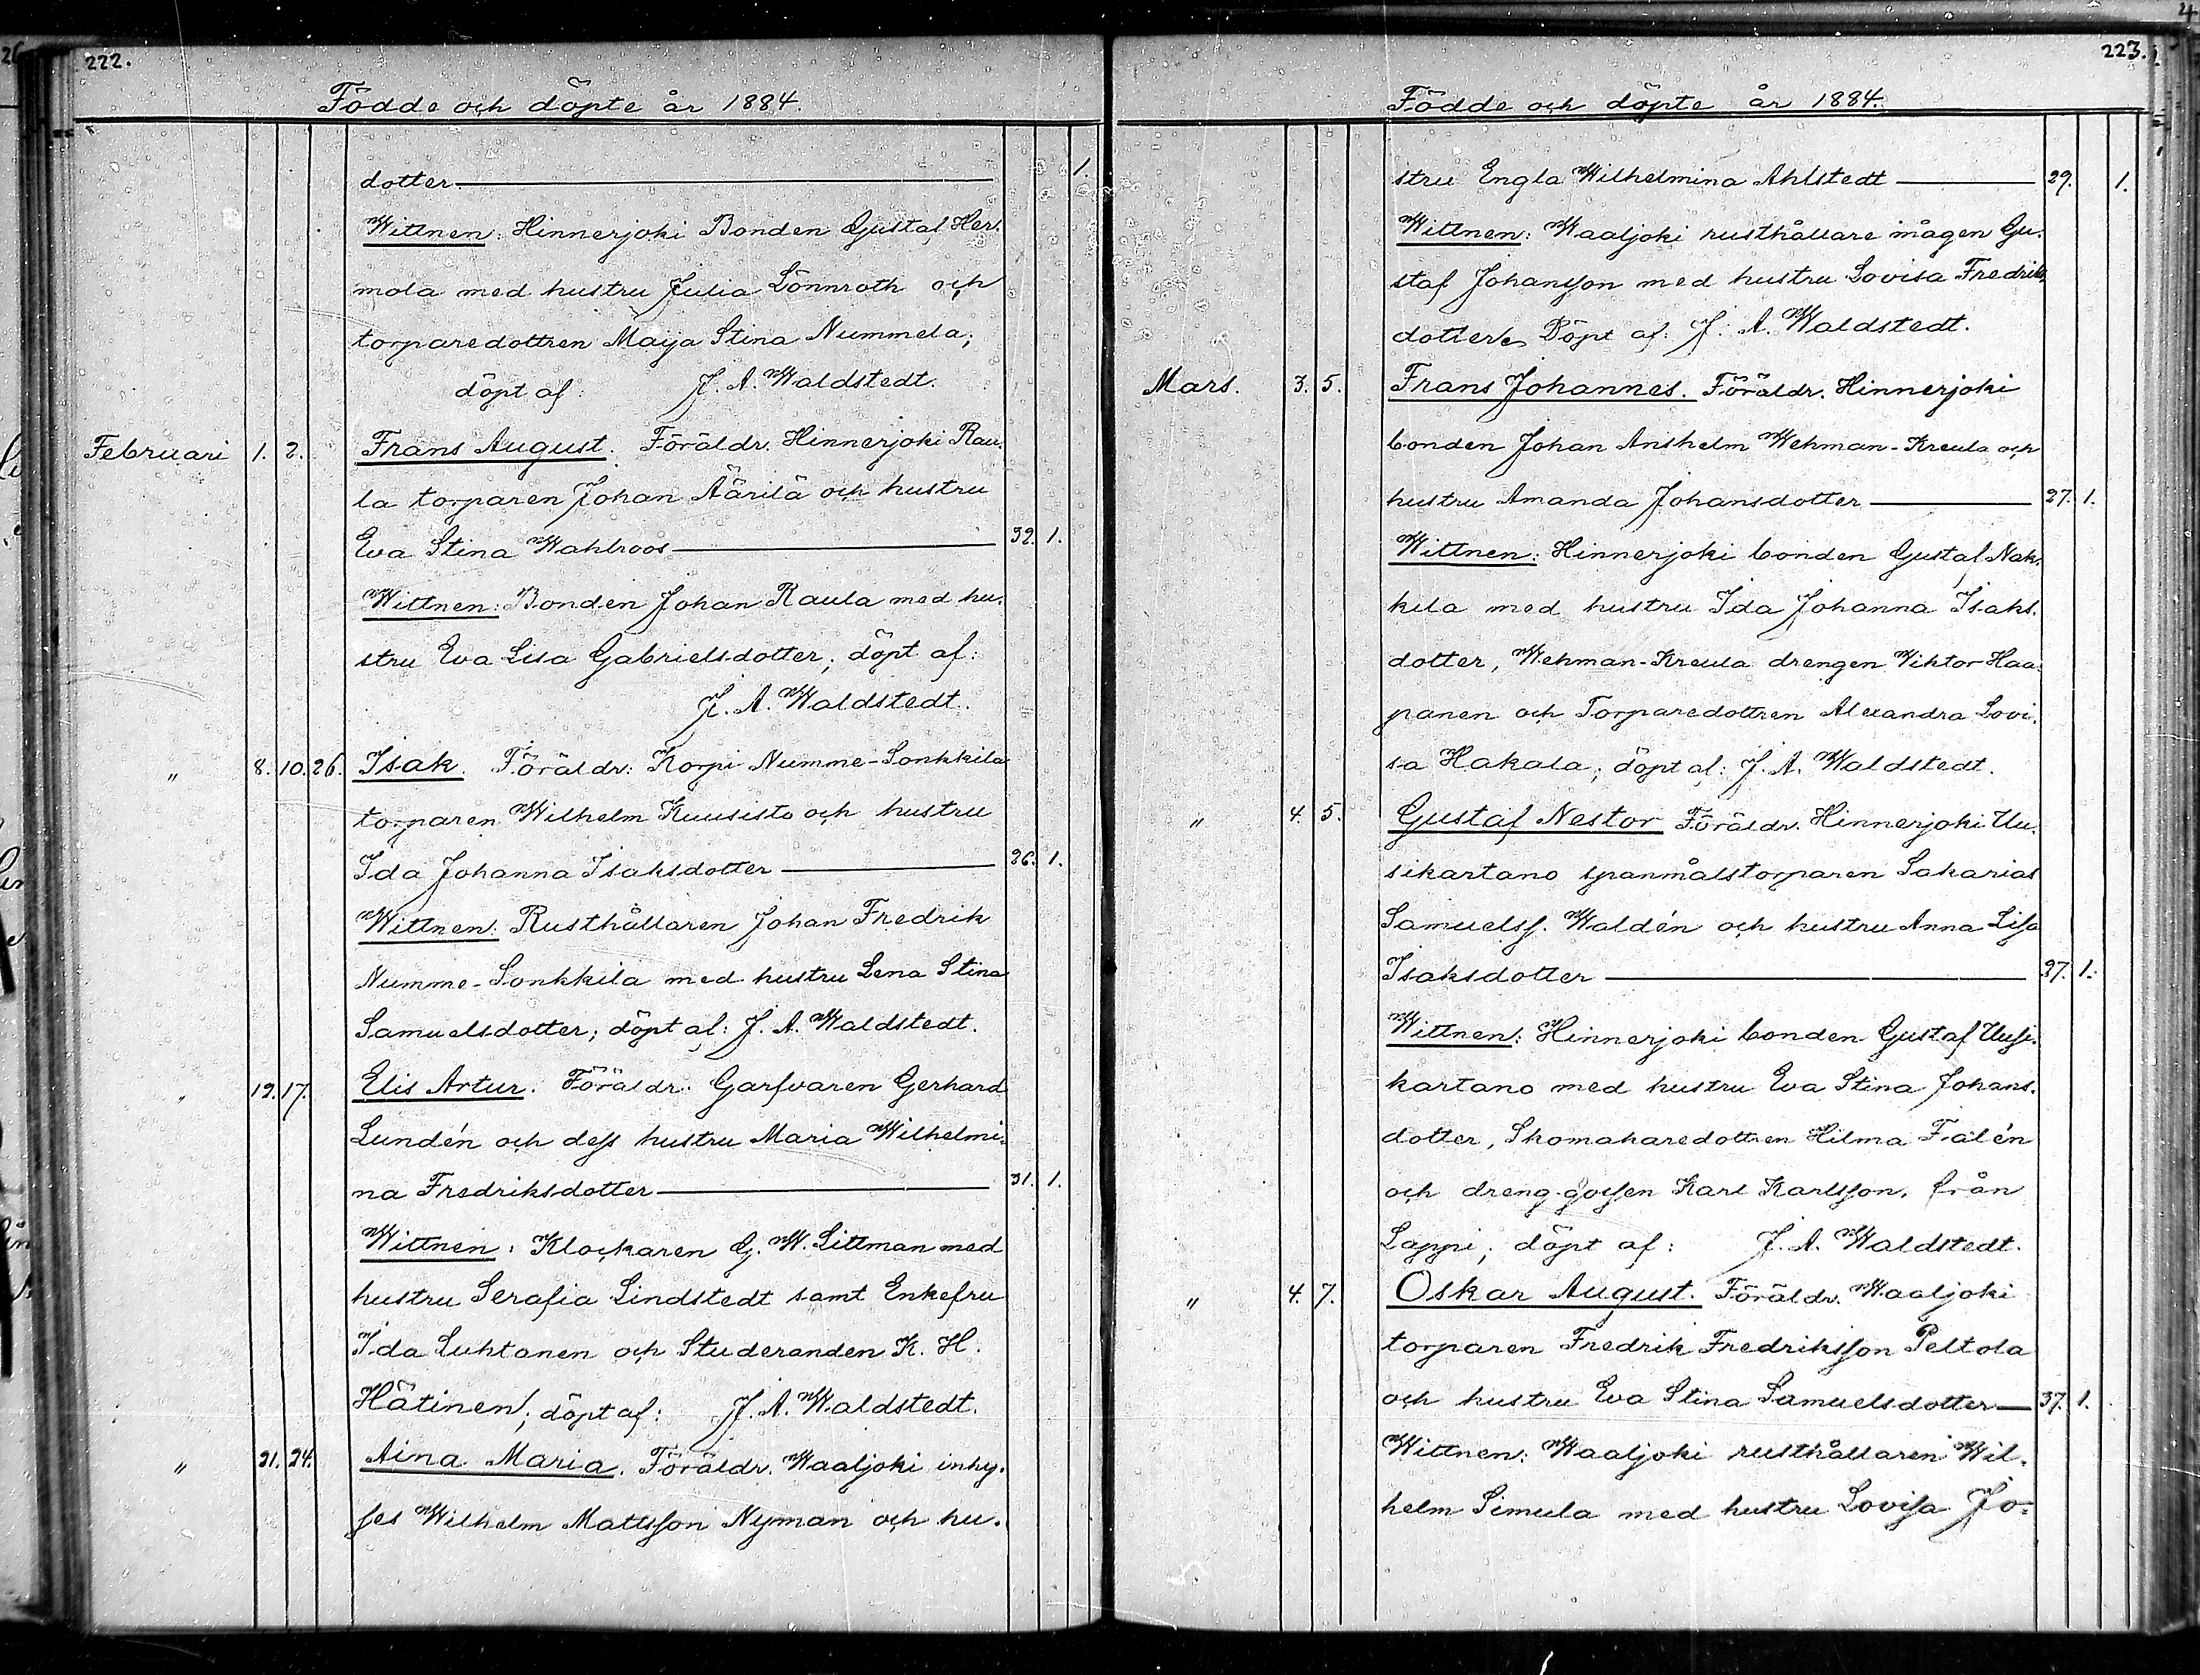 222.
Födde och döpte år 1884.
dotter 1.
Wittnen: Hinnerjoki Bonden Gustaf Her.
mola med hustru Julia Lönnroth och
torparedottren Maija Stina Nummela;
döpt af: J. A. Waldstedt.
Februari 1. 2. Frans August. Föräldr. Hinnerjoki Rau.
la torparen Johan Äärilä och hustru
Eva Stina Wahlroos 32. 1.
Wittnen: Bonden Johan Raula med hu.
stru Eva Lisa Gabrielsdotter; döpt af:
J. A. Waldstedt.
" 8. 10. 26. Isak. Föräldr: Korpi Numme-Sonkkila
torparen Wilhelm Kuusisto och hustru
Ida Johanna Isaksdotter 26. 1.
Wittnen: Rusthållaren Johan Fredrik
Numme-Sonkkila med hustru Lena Stina
Samuelsdotter; döpt af: J. A. Waldstedt.
" 12. 17. Elis Artur. Föräldr. Garfvaren Gerhard
Lundén och dess hustru Maria Wilhelmi.
na Fredriksdotter 31. 1.
Wittnen: Klockaren G. W. Littman med
hustru Serafia Lindstedt samt Enkefru
Ida Luhtanen och Studeranden K. H.
Hätinen; döpt af: J. A. Waldstedt.
" 21. 24. Aina Maria. Föräldr. Waaljoki inhy.
ses Wilhelm Mattsson Nyman och hu.
223.
Födde och döpte år 1884.
stru Engla Wilhelmina Ahlstedt 29. 1.
Wittnen: Waaljoki rusthållare mågen Gu.
staf Johansson med hustru Lovisa Fredriks
dotter. Döpt af: J. A. Waldstedt.
Mars. 3. 5. Frans Johannes. Föräldr. Hinnerjoki
bonden Johan Anshelm Wehman-Kreula och
hustru Amanda Johansdotter 27. 1.
Wittnen: Hinnerjoki bonden Gustaf Nak.
kila med hustru Ida Johanna Isaks.
dotter, Wehman-Kreula drengen Viktor Haa.
panen och Torparedottren Alexandra Lovi.
sa Hakala; döpt af: J. A. Waldstedt.
" 4. 5. Gustaf Nestor Föräldr. Hinnerjoki Uu.
sikartano spanmålstorparen Sakarias
Samuelss. Waldén och hustru Anna Lisa
Isaksdotter 37. 1.
Wittnen: Hinnerjoki bonden Gustaf Uusi.
kartano med hustru Eva Stina Johans.
dotter, Skomakaredottren Hilma Frälén
och dreng-gossen Karl Karlsson, från
Lappi; döpt af: J. A. Waldstedt.
" 4. 7. Oskar August. Föräldr. Waaljoki
torparen Fredrik Fredriksson Peltola
och hustru Eva Stina Samuelsdotter 37. 1.
Wittnen: Waaljoki rusthållaren Wil.
helm Simula med hustru Lovisa Jo.